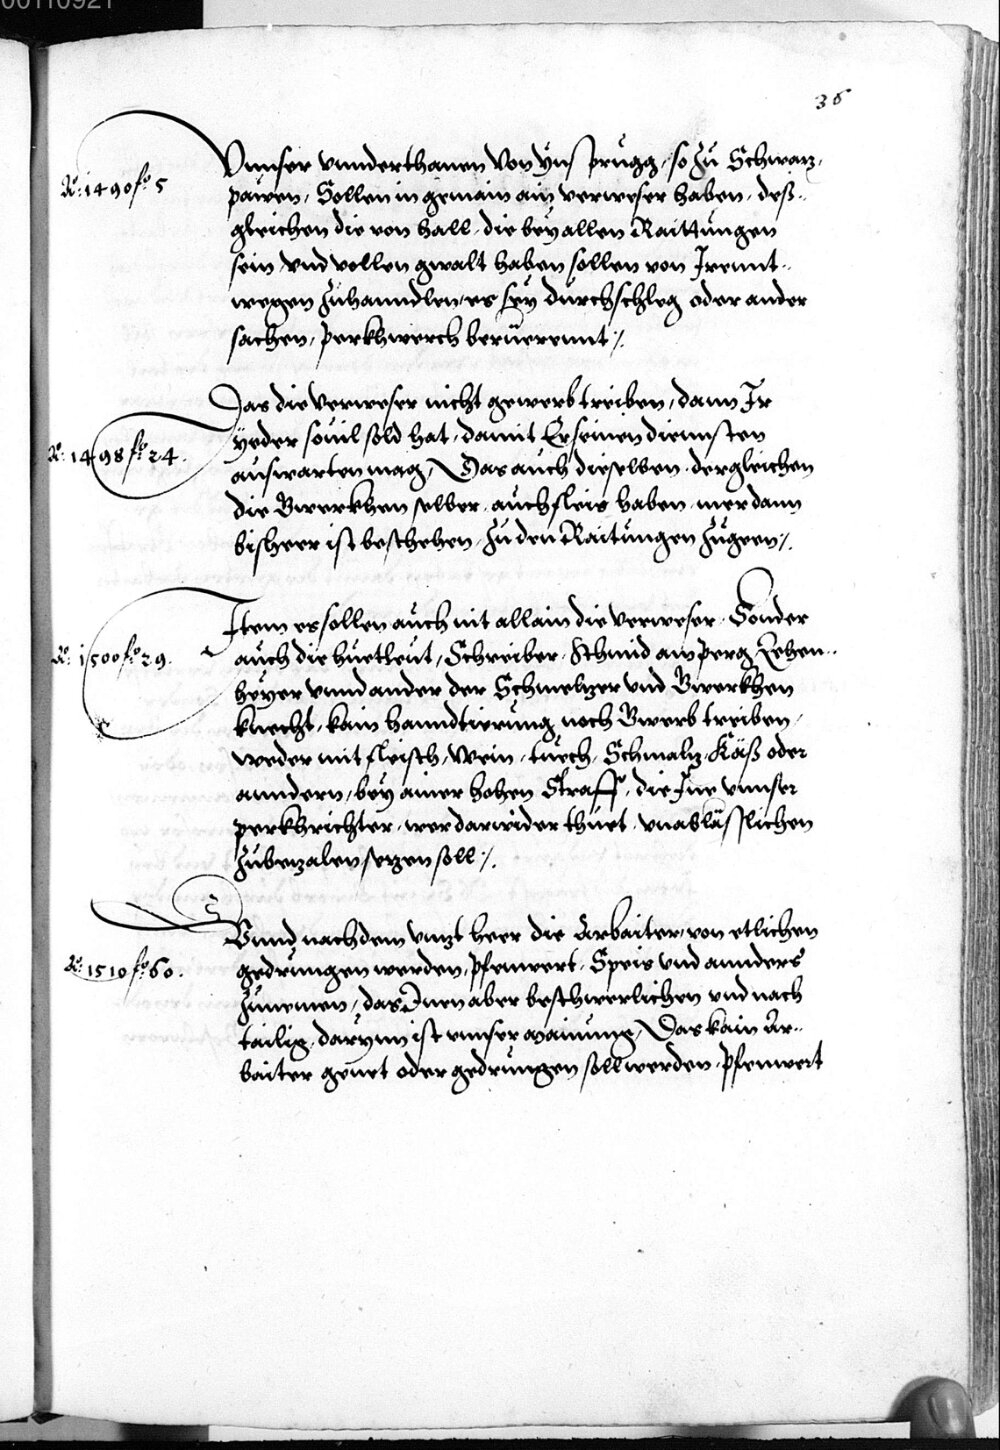 00110921
36
Vnnser vnnderthanen Von Ynsprugg, so zu Schwatz,
Aº: 1490 fº 5
pawen, Sollen in gemain ain verweser haben, deß-
gleichen die von Hall, die bey allen Raittungen
sein, vnd vollen gwalt haben sollen von Irennt-
wegen zuhanndlen, es sey durchschleg oder ander
sachen, perkhwerch beruerennt /.
Das die Verweser nicht gewerb treiben, dann Ir
Aº: 1498 fº 24.
yeder souil sold hat, damit Er seinen diennsten
auswarten mag, Das auch dieselben, dergleichen
die Gwerkhen selber, auch fleis haben, mer dann
bisheer ist beschehen, zu den Raitungen zugeen /.
Item es sollen auch nit allain die verweser, Sonder
Aº: 1500 fº 29.
auch die huetleut, Schreiber, Schmid am perg, Lehen-
heyer vnnd ander der Schmeltzer vnd Gwerkhen
knecht, kain hanndtierung noch Gwerb treiben,
weder mit fleisch, Wein, tuech, Schmaltz, Käß oder
anndern, bey ainer hohen Straff, die Jne vnnser
perkhrichter, wer darwider thuet, vnabläßlichen
zubezalen setzen soll /.
Vnnd nachdem vnntzt heer die Arbaiter, von etlichen
Aº: 1510 fº 60.
gedrungen werden, Pfenwert, Speis vnd annders
zunemen, das Jnen aber beschwerlichen vnd nach
tailig, darynn ist vnnser mainung, Das kain Ar-
baiter genet oder gedrungen soll werden, Pfenwert